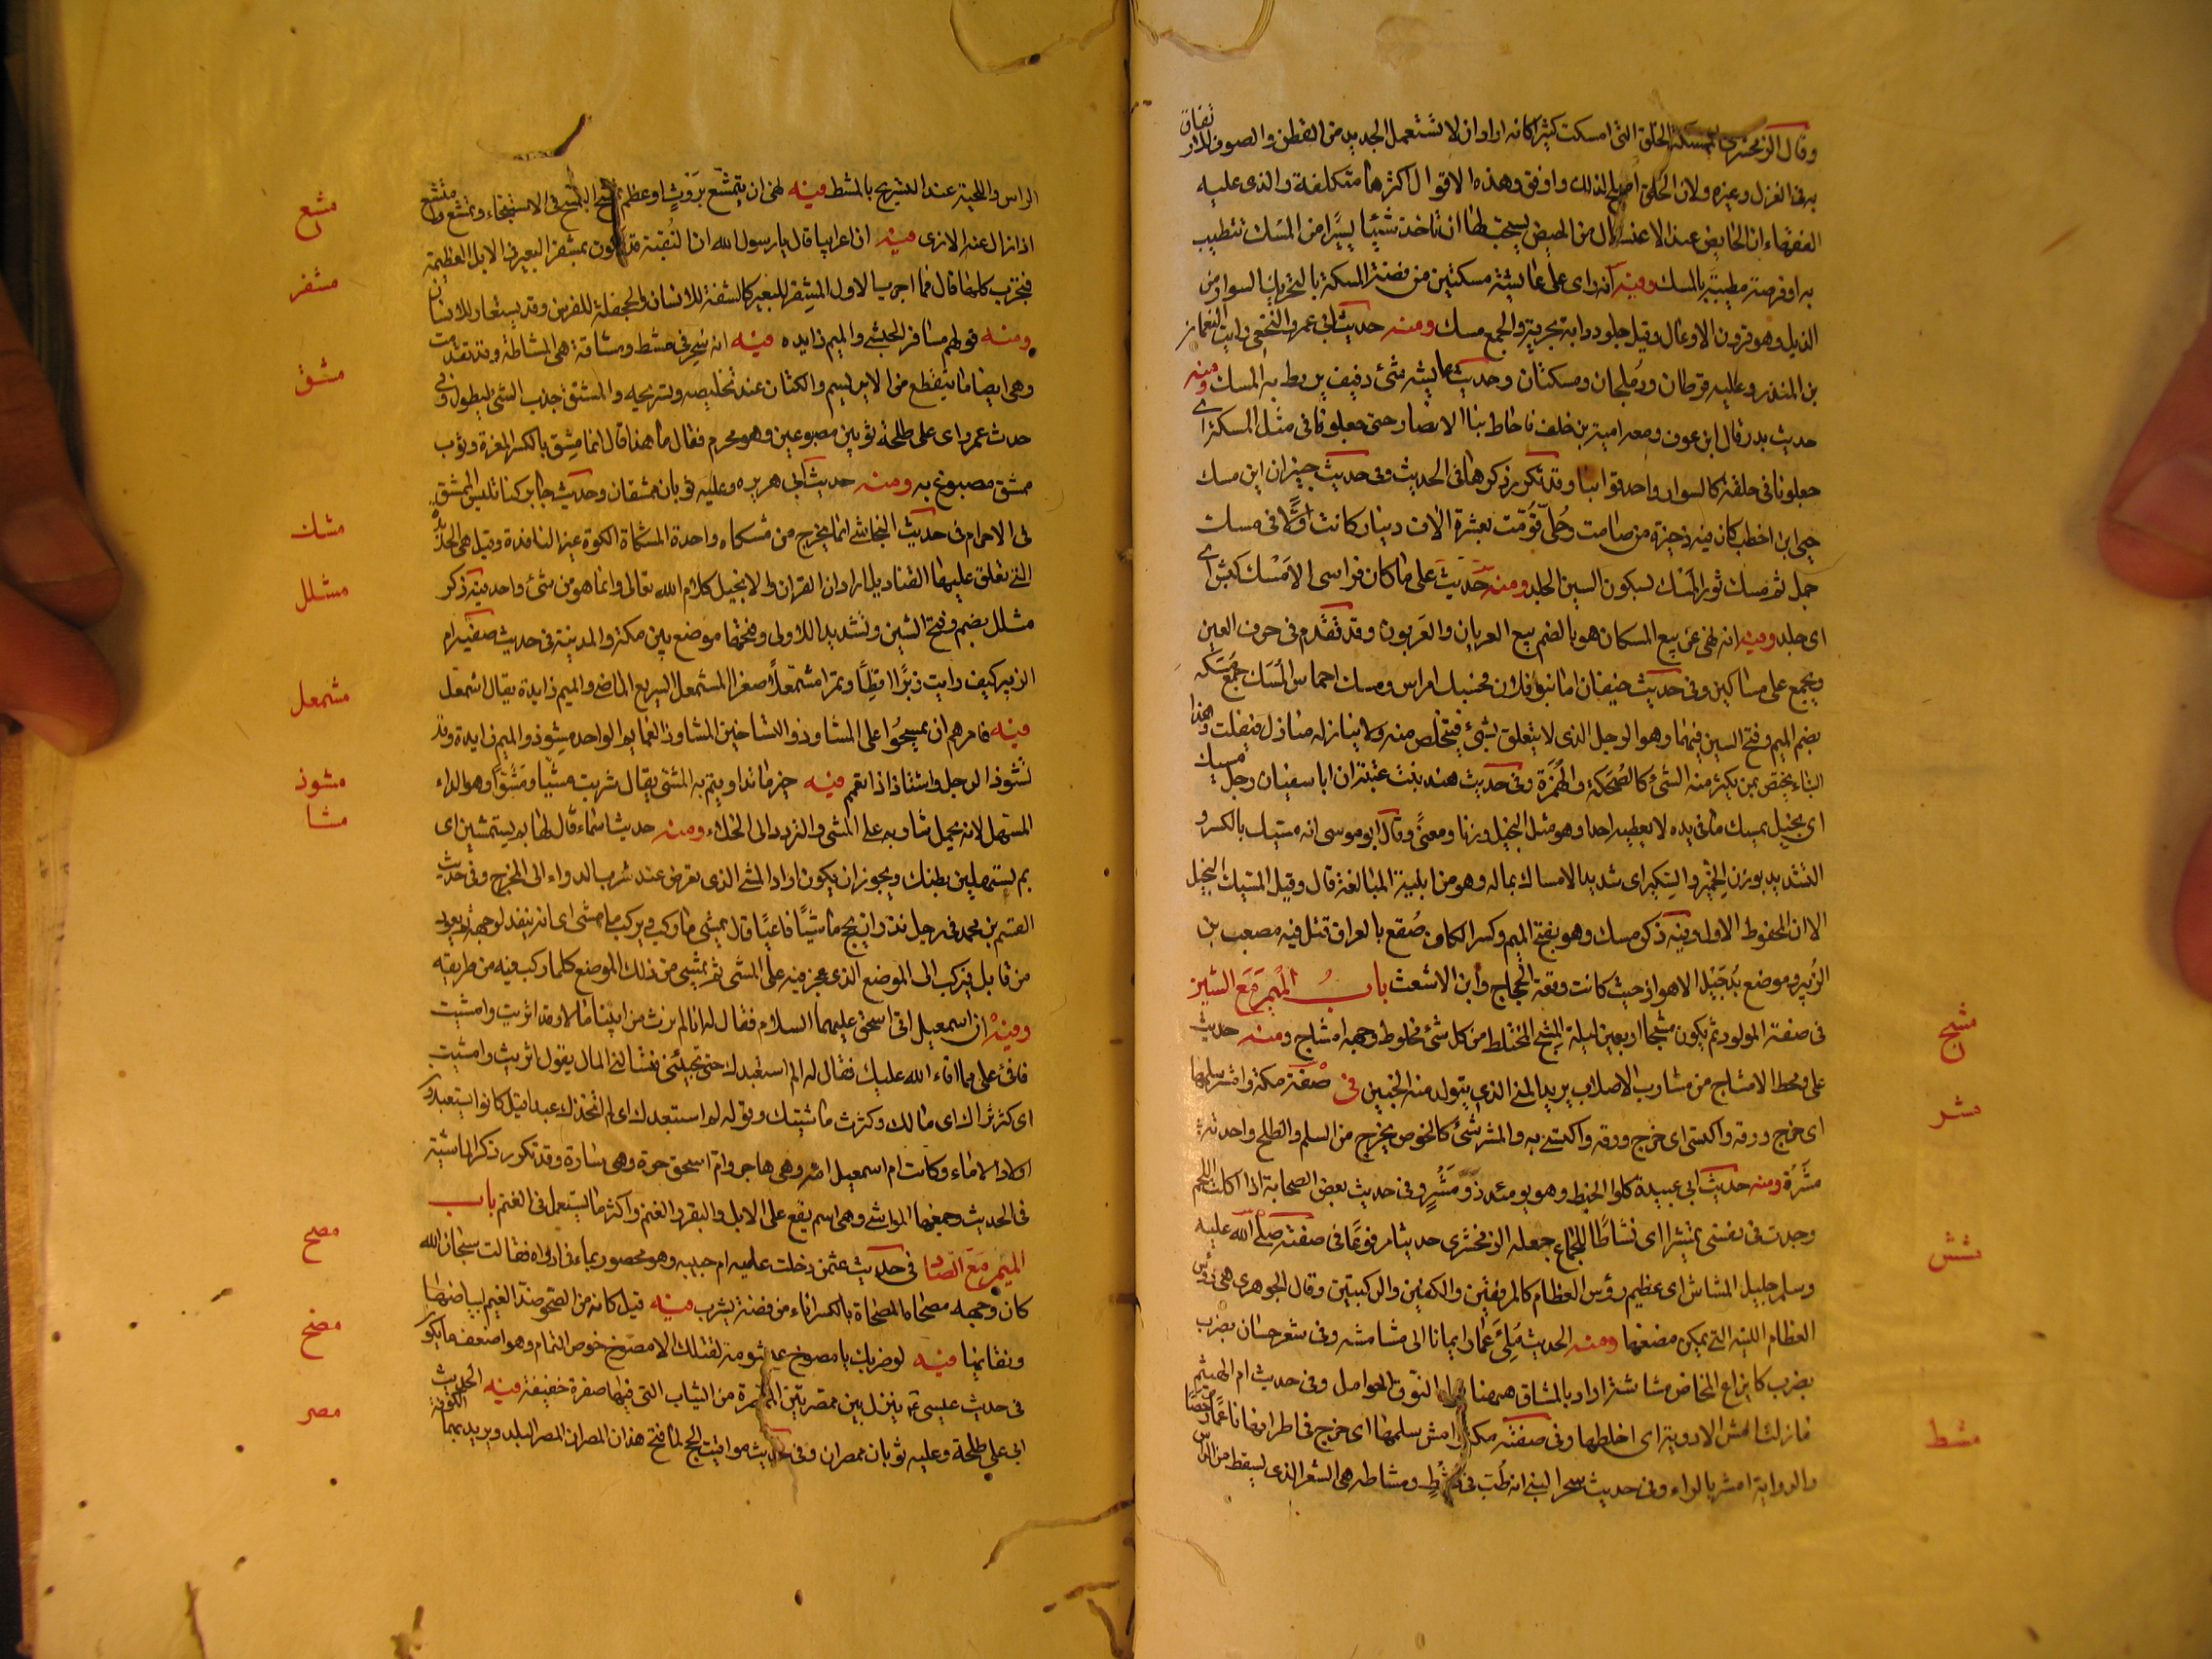 وقال الزمخشري الممسكة الخلق التي امسكت كثيرا كانه اراد ان لا تستعمل الجديد من القطن والصوف للارتفاق
به في الغزل وغيره ولان الخلق اصلح لذلك واوفق وهذه الاقوال اكثرها متكلفة والذي عليه
الفقهاء ان الحايض عند الاغتسال من الحيض يستحب لها ان تاخذ شيئا يسيرا من المسك تتطيب
به او فرصة مطيبة بالمسك وفيه انه راى على عايشة مسكتين من فضة المسكة بالتحريك السوار من
الذبل وهو قرون الاوعال وقيل جلود دابة بحرية والجمع مسك ومنه حديث ابي عمرو النخعي رايت النعمان
بن المنذر وعليه قرطان ودملجان ومسكتان وحديث عايشه شئ دفيف يربط به المسك ومنه
حديث بدر قال ابن عوف ومعه امية بن خلف فاحاط بنا الانصار حتى جعلونا في مثل المسكة اي
جعلونا في حلقة كالسوار واحدقوا بنا وقد تكرر ذكرها في الحديث وفي حديث خيبر ان اين مسك
حيي ابن اخطب كان فيه ذخيرة من صامت وحلي قومت بعشرة الاف دينار كانت اولا في مسك
جمل ثم مسك ثور المسك بسكون السين الجلد ومنه حديث علي ما كان فراسى الا مسك كبش اي
اي جلد وفيه انه نهى عن بيع المسكان هو بالضم بيع العربان والعربون وقد تقدم في حرف العين
ويجمع على مساكين وفي حديث خيفان اما بنو فلان فحسك امراس ومسك احماس المسك جمع مسكه
بضم الميم وفتح السين فيهما وهو الرجل الذي لا يتعلق بشئ فيتخلص منه ولا ينازله منازل فيفلت وهذا
البناء يختص بمن يكثر منه الشئ كالضحكة والهمزة وفي حديث هند بنت عتبة ان ابا سفيان رجل مسيك
اي بخيل يمسك ما في يده لا يعطيه احدا وهو مثل البخيل وزنا ومعنى وقال ابو موسى انه مسيك بالكسر و
التشديد بوزن الخمير والسكير اي شديد الامساك بماله وهو من ابنية المبالغة قال وقيل المسيك البخيل
الا ان المحفوظ الاول وفيه ذكر مسك وهو بفتح الميم وكسر الكاف صقع بالعراق قتل فيه مصعب بن
الزبير وموضع بدجيل الاهواز حيث كانت وقعة الحجاج وابن الاشعث باب الميم مع الشين
مشج
في صفة المولود ثم يكون مشجا اربعين ليلة المشج المختلط من كل شئ مخلوط وجمعه امشاج ومنه حديث
علي ومحط الامشاج من مشارب الاصلاب يريد المني الذي يتولد منه الجنين في صفة مكة وامشر سلمها
مشر
اي خرج ورقه واكتسى اي خرج ورقه واكتسى به والمشر شئ كالخوص يخرج من السلم والطلح واحدته
مشرة ومنه حديث ابي عبيدة كلوا الخبط وهو يومئذ ذو مشر وفي حديث بعض الصحابة اذا اكلت اللحم
وجدت في نفسي تمشيرا اي نشاطا للجماع جعله الزمخشري حديثا مرفوعا في صفته صلى الله عليه
مشش
وسلم جليل المشاش اي عظيم رؤس العظام كالمرفقين والكفين والركبتين وقال الجوهري هي رؤس
العظام اللينة التي يمكن مضغها ومنه الحديث ملئ عمار ايمانا الى مشاشه وفي شعر حسان بضرب
بضرب كايزاغ المخاض مشاشه اراد بالمشاش ههنا النوق الحوامل وفي حديث ام الهيثم
ما زلت امش الادوية اي اخلطها وفي صفة مكة وامش سلمها اي خرج في اطرافه ناعما رخصا
مشط
والرواية امشر بالراء وفي حديث سحر النبي انه طب في مشط ومشاطه هي الشعر الذي يسقط من الراس
الراس واللحية عند التسريح بالمشط فيه نهى ان يتمشع بروث او عظم التمشع التمسح في الاستنجاء وتمشع وامتشع
مشع
اذا زال عنه الاذى فيه ان اعرابيا قال يا رسول الله ان النقبة قد تكون بمشفر البعير في الابل العظيمة
مشفر
فتجرب كلها قال فما اجرب الاول المشفر للبعير كالشفة للانسان والجحفلة للفرس وقد يستعار للانسان
ومنه قولهم مشافر الحبشي والميم زايده فيه انه سحر في مشط ومشاقة هي المشاطة وقد تقدمت
مشق
وهي ايضا ما ينقطع من الابريسم والكتان عند تخليصه وتسريحه والمشق جذب الشئ ليطول وفي
حدث عمر راى على طلحة ثوبين مصبوغين وهو محرم فقال ما هذا قال انما مشق بالكسر المغرة وثوب
ممشق مصبوغ به ومنه حديث ابي هريره وعليه ثوبان ممشقان وحديث جابر كنا نلبس الممشق
في الاحرام في حديث النجاشي انما يخرج من مشكاه واحدة المشكاة الكوة غير النافذة وقيل هي الحديدة
مشك
التي تعلق عليها القناديل اراد ان القران والانجيل كلام الله تعالى وانما هو من شئ واحد فيه ذكر
مشلل
مشلل بضم وفتح الشين وتشديد اللاولى وفتحها موضع بين مكة والمدينة في حديث صفيه ام
الزبير كيف رايت زبرا اقطا وتمرا مشمعلا صقرا المشمعل السريع الماضي والميم زايدة يقال اشمعل
مشمعل
فيه فامرهم ان يمسحوا على المشاوذ والتساخين المشاوذ العمايم الواحد مشوذ والميم زايدة وقد
تشوذ الرجل واشتاذ اذا تعمم فيه خير ما تداويتم به المشي يقال شربت مشيا ومشوا وهو الدواء
مشوذ
مشا
المسهل لانه يحمل شاربه على المشي والتردد الى الخلاء ومنه حديث اسماء قال لها بم تستمشين اي
بم تستسهلين بطنك ويجوز ان يكون اراد المشي الذي يعرض عند شرب الدواء الى المخرج وفي حديث
القسم بن محمد في رجل نذر ان يحج ماشيا فاعيا قال يمشي ما ركب ويركب ما مشى اي انه ينفذ لوجهه ثم يعود
من قابل فيركب الى الموضع الذي عجز فيه على المشي ثم يمشي من ذلك الموضع كلما ركب فيه من طريقه
وفيه ان اسمعيل اتى اسحق عليهما السلام فقال له انا لم نرث من ابينا مالا وقد اثريت وامشيت
فافئ علي مما افاء الله عليك فقال له الم استعبدك حتى تجيئني فتسالني المال يقول اثريت وامشيت
اي كثر ثراك اي مالك وكثرت ماشيتك وقوله لم استعبدك اي اتخذك عبدا قيل كانوا يستعبدون
اولاد الاماء وكانت ام اسمعيل امه وهي هاجر وام اسحق حرة وهي سارة وقد تكرر ذكر الماشية
في الحديث وجمعها المواشي وهي اسم يقع على الابل والبقر والغنم واكثر ما يستعمل في الغنم باب
الميم مع الصاد في حديث عثمن دخلت عليه ام حبيبه وهو محصور بماء في اداوة فقالت سبحان الله
مصح
كان وجهه مصحاة المصحاة بالكسر اناء من فضة يشرب فيه قيل كانه من الصحو ضد الغيم لبياضها
ونقايها فيه لو ضربك بامصوخ عيشومة لقتلك الامصوخ خوص الثمام وهو اضعف ما يكون
مصخ
في حديث عيسى عم ينزل بين ممصرتين الممصرة من الثياب التي فيها صفرة خفيفة فيه الحديث
مصر
اتى علي طلحة وعليه ثوبان ممصران وفي حديث مواقيت الحج لما فتح هذان المصران المصر البلد ويريد بهما الكوفة